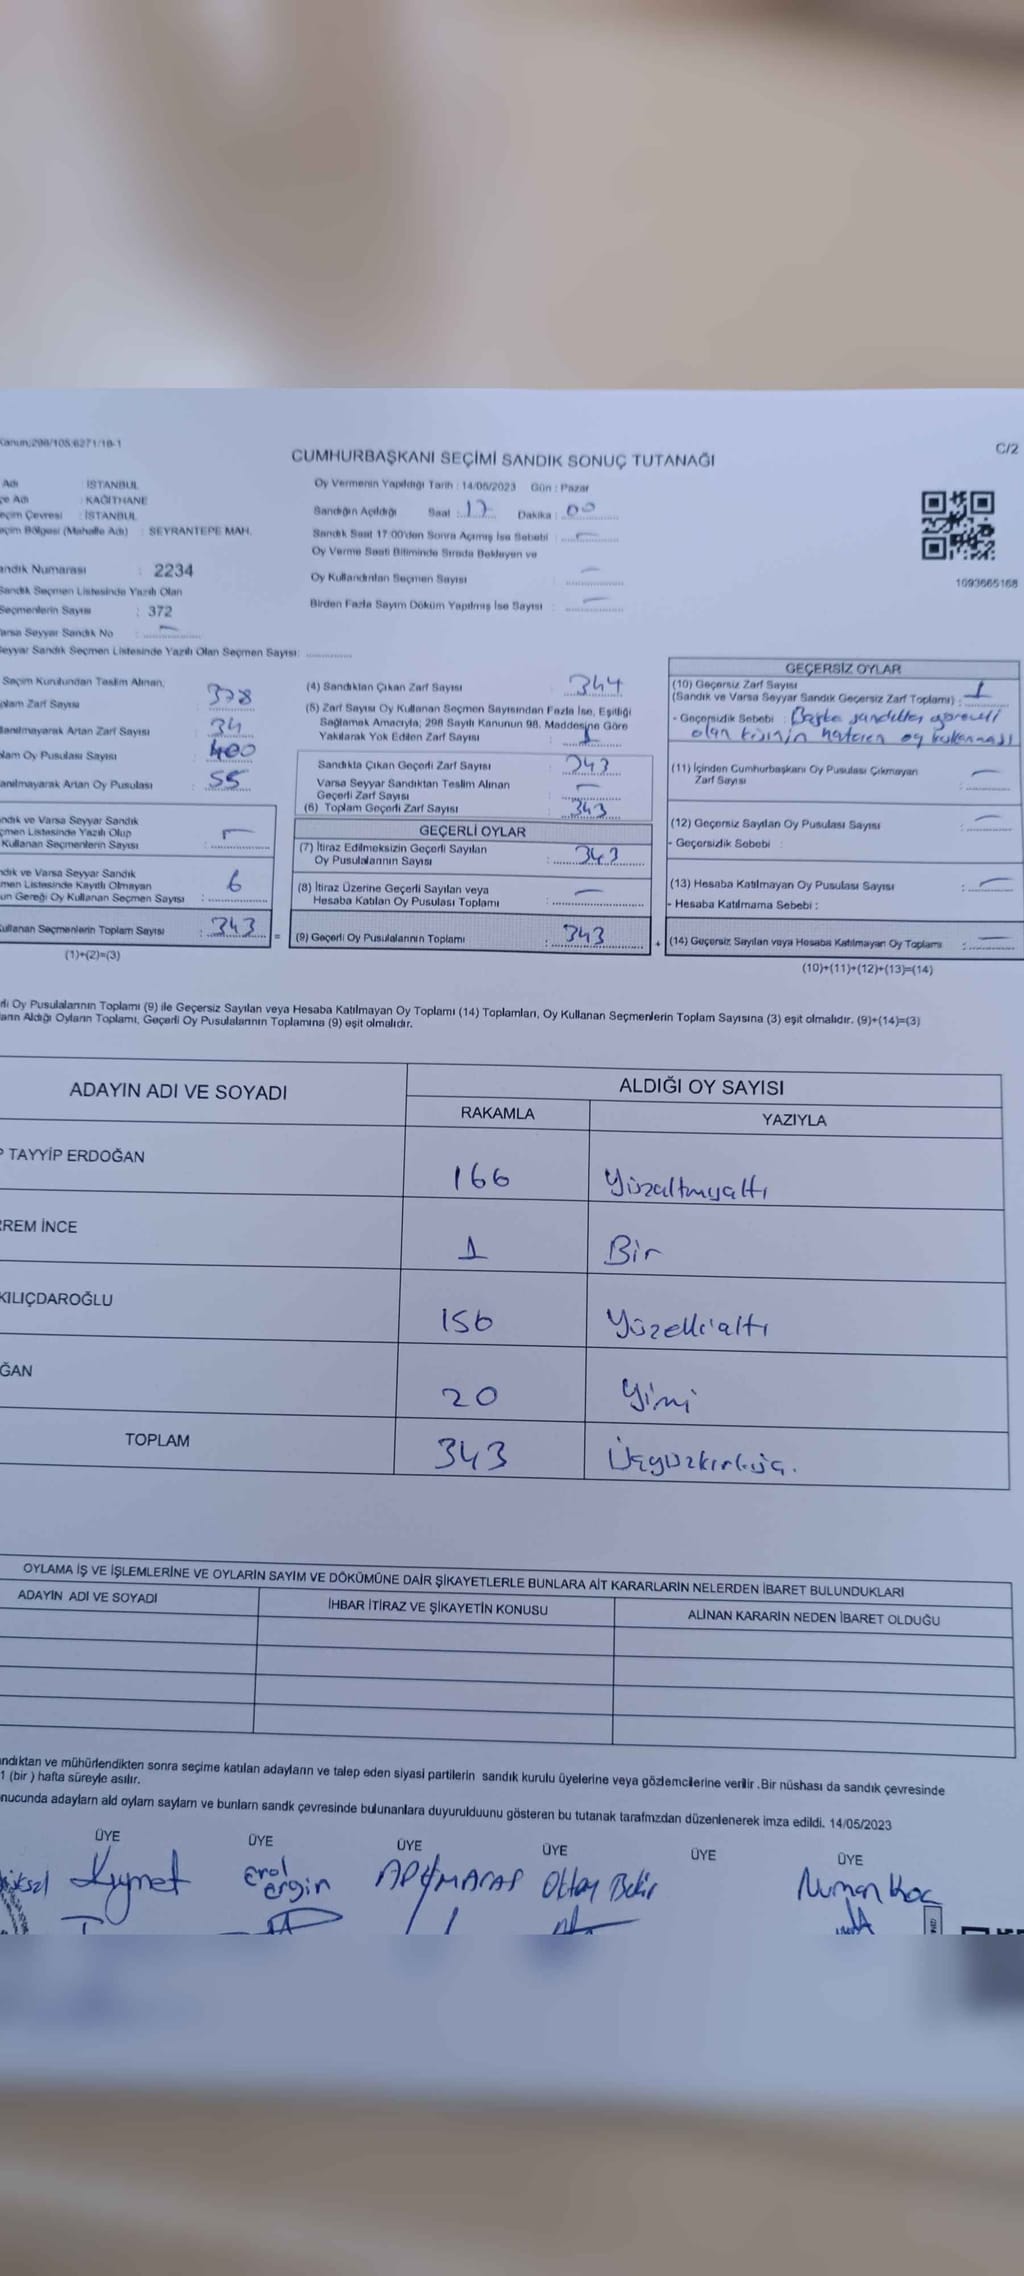 Kanun:298/105:6271/18-1
C/2
CUMHURBAŞKANI SEÇİMİ SANDIK SONUÇ TUTANAĞI
Adı İSTANBUL
çe Adı : KAĞITHANE
eçim Çevresi : İSTANBUL
eçim Bölgesi (Mahalle Adı) : SEYRANTEPE MAH.
andık Numarası : 2234
Sandık Seçmen Listesinde Yazılı Olan
Seçmenlerin Sayısı : 372
arsa Seyyar Sandık No : –
Seyyar Sandık Seçmen Listesinde Yazılı Olan Seçmen Sayısı:
Oy Vermenin Yapıldığı Tarih : 14/05/2023 Gün : Pazar
Sandığın Açıldığı Saat : 17 Dakika : 00
Sandık Saat 17:00'den Sonra Açılmış İse Sebebi : –
Oy Verme Saati Bitiminde Sırada Bekleyen ve
Oy Kullandırılan Seçmen Sayısı –
Birden Fazla Sayım Döküm Yapılmış İse Sayısı : –
1693665168
Seçim Kurulundan Teslim Alınan,
plam Zarf Sayısı : 378
llanılmayarak Artan Zarf Sayısı : 34
plam Oy Pusulası Sayısı : 400
anılmayarak Artan Oy Pusulası : 55
ndık ve Varsa Seyyar Sandık
çmen Listesinde Yazılı Olup
Kullanan Seçmenlerin Sayısı : –
ndık ve Varsa Seyyar Sandık
men Listesinde Kayıtlı Olmayan
un Gereği Oy Kullanan Seçmen Sayısı : 6
Kullanan Seçmenlerin Toplam Sayısı : 343 =
(1)+(2)=(3)
(4) Sandıktan Çıkan Zarf Sayısı : 344
(5) Zarf Sayısı Oy Kullanan Seçmen Sayısından Fazla İse, Eşitliği
Sağlamak Amacıyla; 298 Sayılı Kanunun 98. Maddesine Göre
Yakılarak Yok Edilen Zarf Sayısı : 1
Sandıkta Çıkan Geçerli Zarf Sayısı : 343
Varsa Seyyar Sandıktan Teslim Alınan
Geçerli Zarf Sayısı : –
(6) Toplam Geçerli Zarf Sayısı : 343
GEÇERLİ OYLAR
(7) İtiraz Edilmeksizin Geçerli Sayılan
Oy Pusulalarının Sayısı : 343
(8) İtiraz Üzerine Geçerli Sayılan veya
Hesaba Katılan Oy Pusulası Toplamı : –
(9) Geçerli Oy Pusulalarının Toplamı : 343 +
GEÇERSİZ OYLAR
(10) Geçersiz Zarf Sayısı
(Sandık ve Varsa Seyyar Sandık Geçersiz Zarf Toplamı) : 1
- Geçersizlik Sebebi : Başka sandıkta görevli
olan kişinin hataren oy kullanması
(11) İçinden Cumhurbaşkanı Oy Pusulası Çıkmayan
Zarf Sayısı : –
(12) Geçersiz Sayılan Oy Pusulası Sayısı : –
- Geçersizlik Sebebi :
(13) Hesaba Katılmayan Oy Pusulası Sayısı : –
- Hesaba Katılmama Sebebi :
(14) Geçersiz Sayılan veya Hesaba Katılmayan Oy Toplamı : –
(10)+(11)+(12)+(13)=(14)
rli Oy Pusulalarının Toplamı (9) ile Geçersiz Sayılan veya Hesaba Katılmayan Oy Toplamı (14) Toplamları, Oy Kullanan Seçmenlerin Toplam Sayısına (3) eşit olmalıdır. (9)+(14)=(3)
arın Aldığı Oyların Toplamı, Geçerli Oy Pusulalarının Toplamına (9) eşit olmalıdır.
ADAYIN ADI VE SOYADI ALDIĞI OY SAYISI
RAKAMLA YAZIYLA
P TAYYİP ERDOĞAN 166 Yüzaltmışaltı
RREM İNCE 1 Bir
KILIÇDAROĞLU 156 Yüzelli'altı
ĞAN 20 Yimi
TOPLAM 343 Üçyüzkırküç.
OYLAMA İŞ VE İŞLEMLERİNE VE OYLARIN SAYIM VE DÖKÜMÜNE DAİR ŞİKAYETLERLE BUNLARA AİT KARARLARIN NELERDEN İBARET BULUNDUKLARI
ADAYIN ADI VE SOYADI İHBAR İTİRAZ VE ŞİKAYETİN KONUSU ALINAN KARARIN NEDEN İBARET OLDUĞU
ndıktan ve mühürlendikten sonra seçime katılan adayların ve talep eden siyasi partilerin sandık kurulu üyelerine veya gözlemcilerine verilir .Bir nüshası da sandık çevresinde
1 (bir ) hafta süreyle asılır.
nucunda adaylarn ald oylarn saylarn ve bunlarn sandk çevresinde bulunanlara duyurulduunu gösteren bu tutanak tarafmzdan düzenlenerek imza edildi. 14/05/2023
ÜYE ÜYE ÜYE ÜYE ÜYE ÜYE
Kıymet erol ergin Oktay Bekir Numan Koç